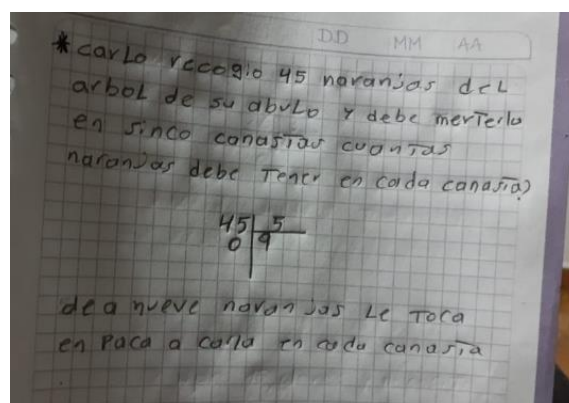 DD MM AA
* carlo recogio 45 naranjas del
arbol de su abulo y debe merterlo
en sinco canastas cuantas
naranjas debe tener en cada canasta?
45 5
0 9
de a nueve naranjas le toca
en paca a carla en cada canasta